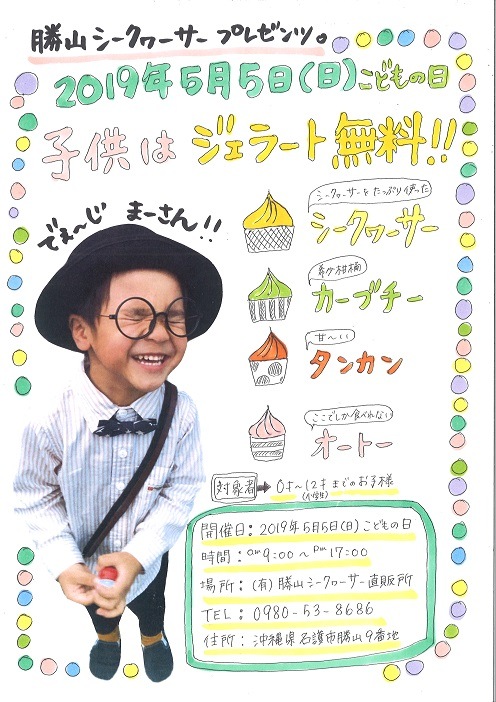 勝山シークヮーサー プレゼンツ。
2019年5月5日(日)こどもの日
子供は ジェラート無料!!
でぇ〜じ まーさん!!
シークヮーサーをたっぷり使った
シークヮーサー
希少柑橘
カーブチー
甘〜い
タンカン
ここでしか食べれない
オートー
対象者→0才〜12才までのお子様
(小学生)
開催日:2019年5月5日(日)こどもの日
時間:am9:00〜Pm17:00
場所:(有)勝山シークヮーサー直販所
TEL:0980-53-8686
住所:沖縄県名護市勝山9番地